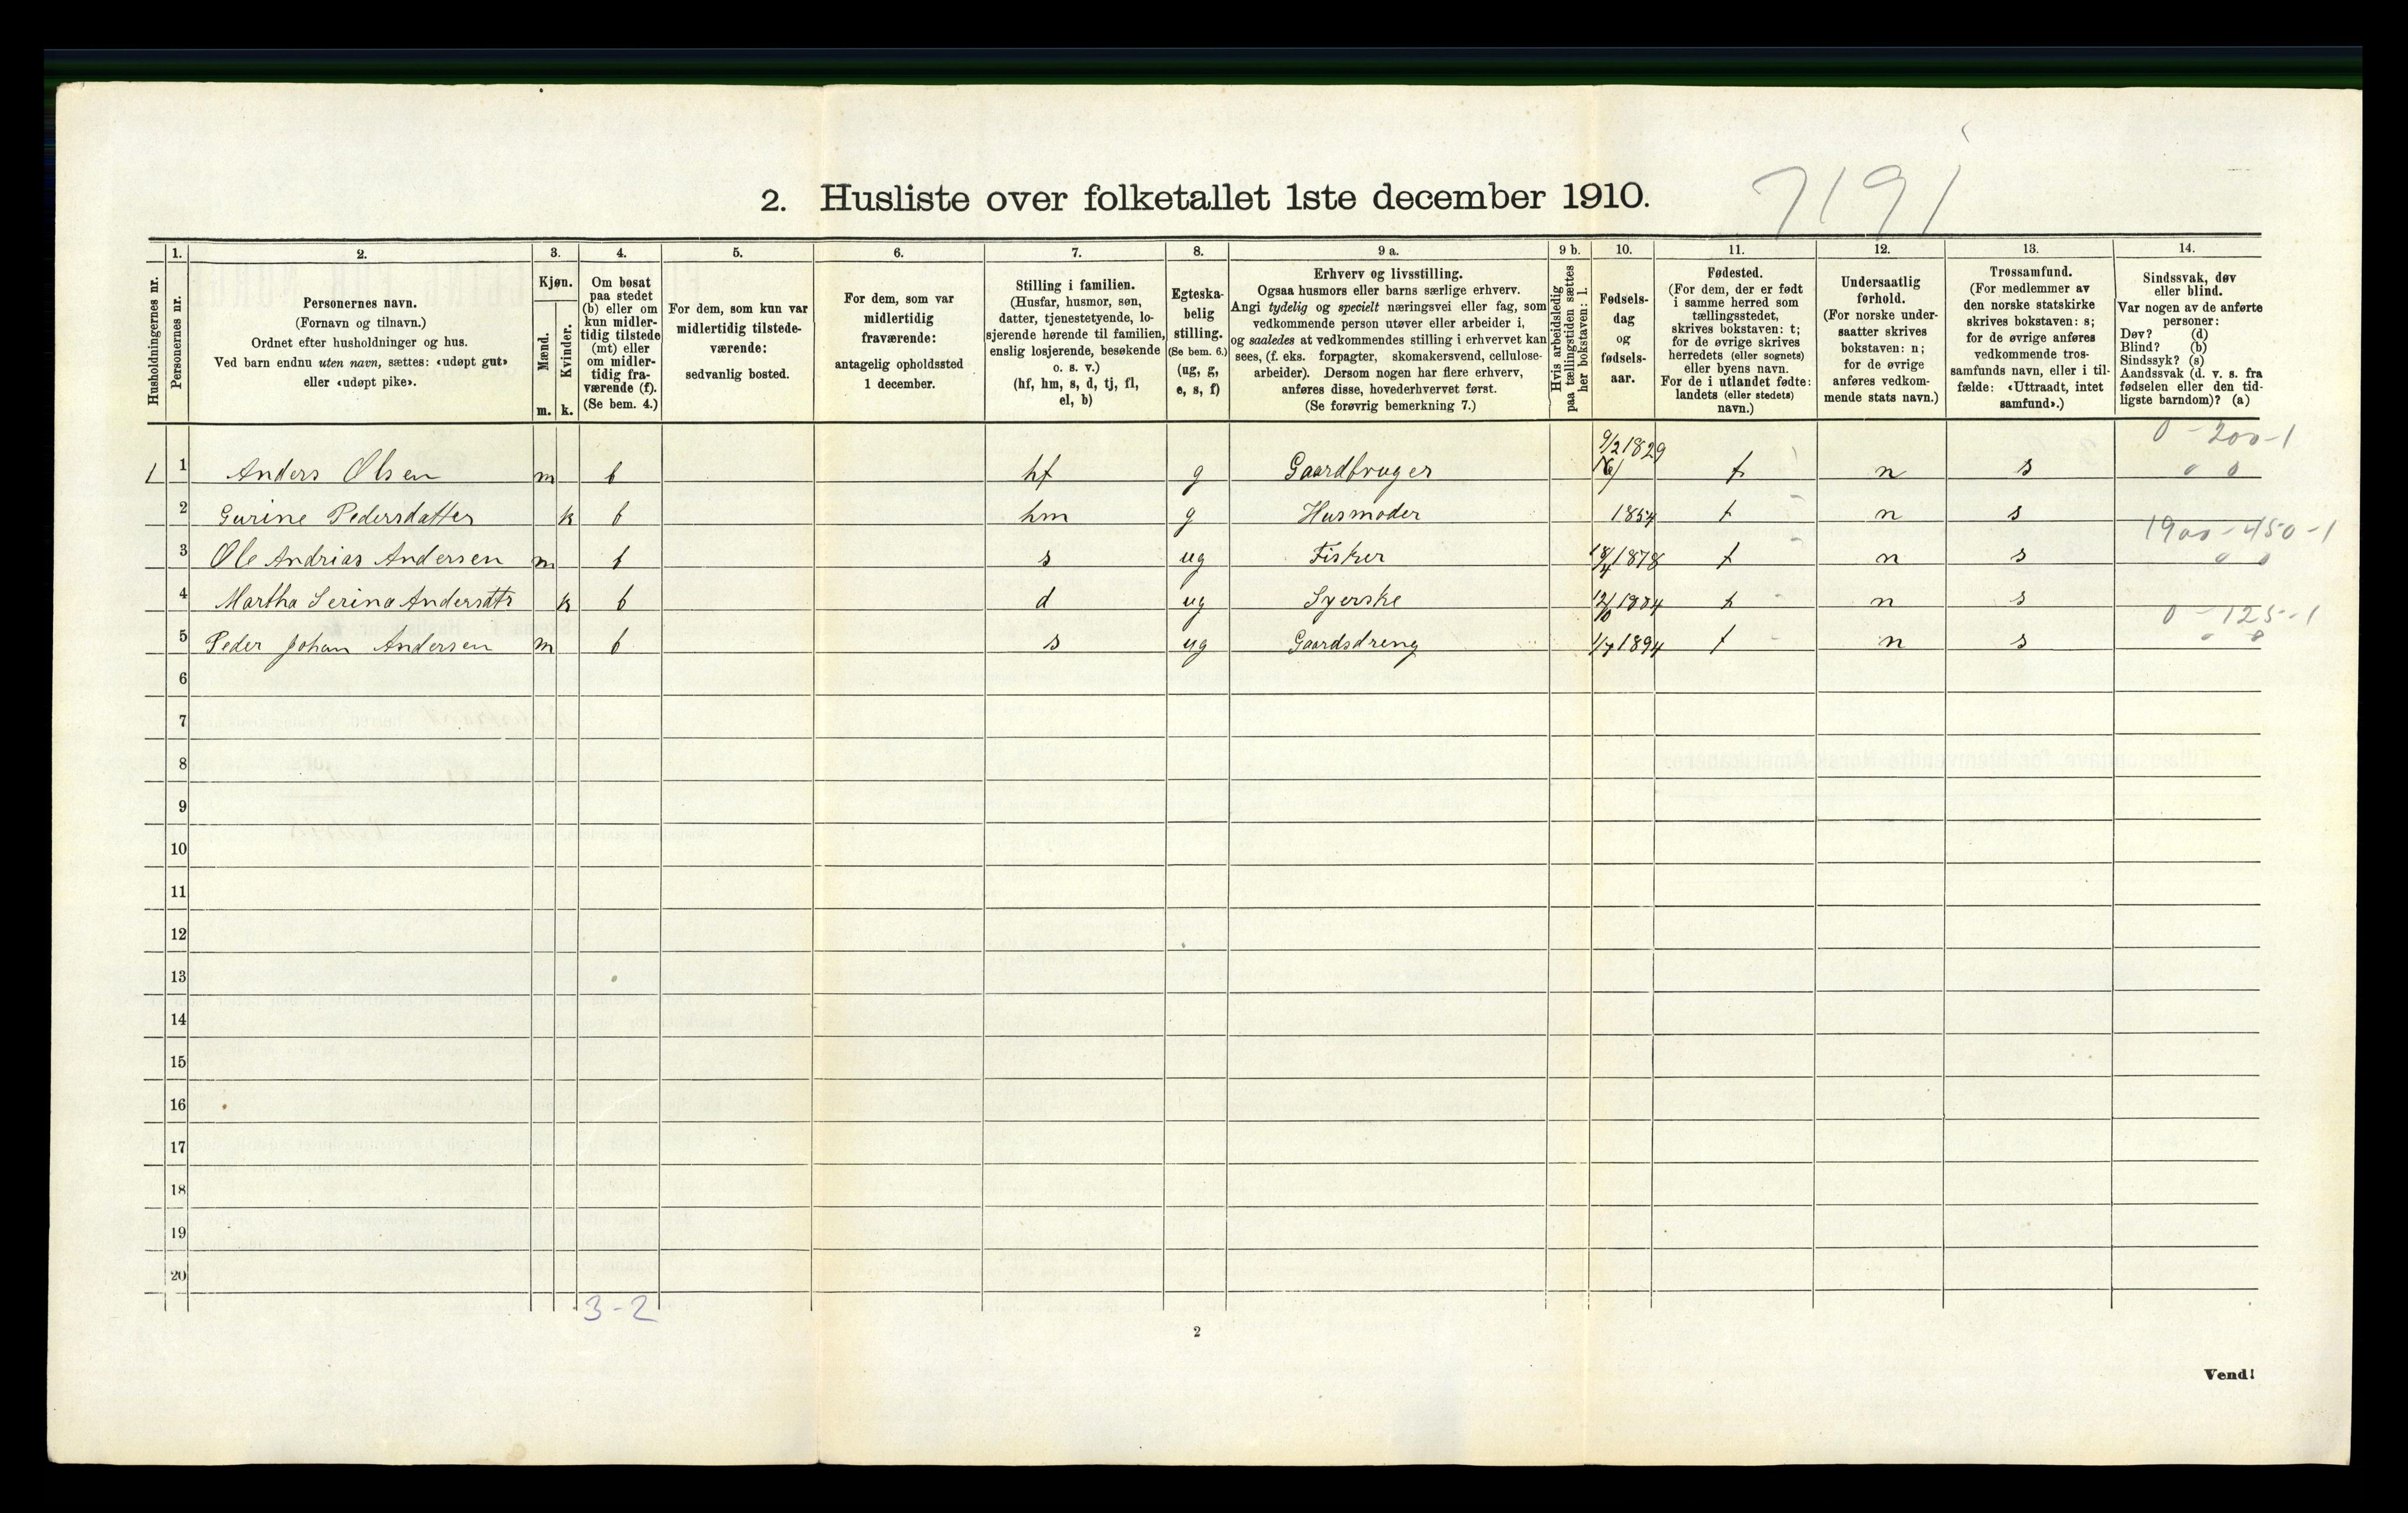 7191
2. Husliste over folketallet 1ste december 1910.
Husholdningernes nr.
1.
Personernes nr.
2.
Personernes navn.
(Fornavn og tilnavn.)
Ordnet efter husholdninger og hus.
Ved barn endnu uten navn, sættes: «udøpt gut»
eller «udøpt pike».
3.
Kjøn.
Mænd.
Kvinder.
m. k.
4.
Om bosat
paa stedet
(b) eller om
kun midler-
tidig tilstede
(mt) eller
om midler-
tidig fra-
værende (f).
(Se bem. 4.)
5.
For dem, som kun var
midlertidig tilstede-
værende:
sedvanlig bosted.
6.
For dem, som var
midlertidig
fraværende:
antagelig opholdssted
1 december.
7.
Stilling i familien.
(Husfar, husmor, søn,
datter, tjenestetyende, lo-
sjerende hørende til familien,
enslig losjerende, besøkende
o. s. v.)
(hf, hm, s, d, tj, fl,
el, b)
8.
Egteska-
belig
stilling.
(Se bem. 6.)
(ug, g,
e, s, f)
9 a.
Erhverv og livsstilling.
Ogsaa husmors eller barns særlige erhverv.
Angi tydelig og specielt næringsvei eller fag, som
vedkommende person utøver eller arbeider i,
og saaledes at vedkommendes stilling i erhvervet kan
sees, (f. eks. forpagter, skomakersvend, cellulose-
arbeider). Dersom nogen har flere erhverv,
anføres disse, hovederhvervet først.
(Se forøvrig bemerkning 7.)
9 b.
Hvis arbeidsledig
paa tællingstiden sættes
her bokstaven: l.
10.
Fødsels-
dag
og
fødsels-
aar.
11.
Fødested.
(For dem, der er født
i samme herred som
tællingsstedet,
skrives bokstaven: t;
for de øvrige skrives
herredets (eller sognets)
eller byens navn.
For de i utlandet fødte:
landets (eller stedets)
navn.)
12.
Undersaatlig
forhold.
(For norske under-
saatter skrives
bokstaven: n;
for de øvrige
anføres vedkom-
mende stats navn.)
13.
Trossamfund.
(For medlemmer av
den norske statskirke
skrives bokstaven: s;
for de øvrige anføres
vedkommende tros-
samfunds navn, eller i til-
fælde: «Uttraadt, intet
samfund».)
14.
Sindssvak, døv
eller blind.
Var nogen av de anførte
personer:
Døv? (d)
Blind? (b)
Sindssyk? (s)
Aandssvak (d. v. s. fra
fødselen eller den tid-
ligste barndom)? (a)
0 - 200-1
1 1 Anders Olsen m b hf g Gaardbruger 9/2 1829 t n s 0 0
2 Gurine Pedersdatter k b hm g Husmoder 1854 t n s
1900-450-1
3 Ole Andrias Andersen m b s ug Fisker 18/4 1878 t n s 0 0
4 Martha Serina Andersdtr k b d ug Syerske 12/10 1884 t n s
0 - 125-1
5 Peder Johan Andersen m b s ug Gaardsdreng 1/7 1894 t n s 0 0
6
7
8
9
10
11
12
13
14
15
16
17
18
19
20
3-2
2
Vend!